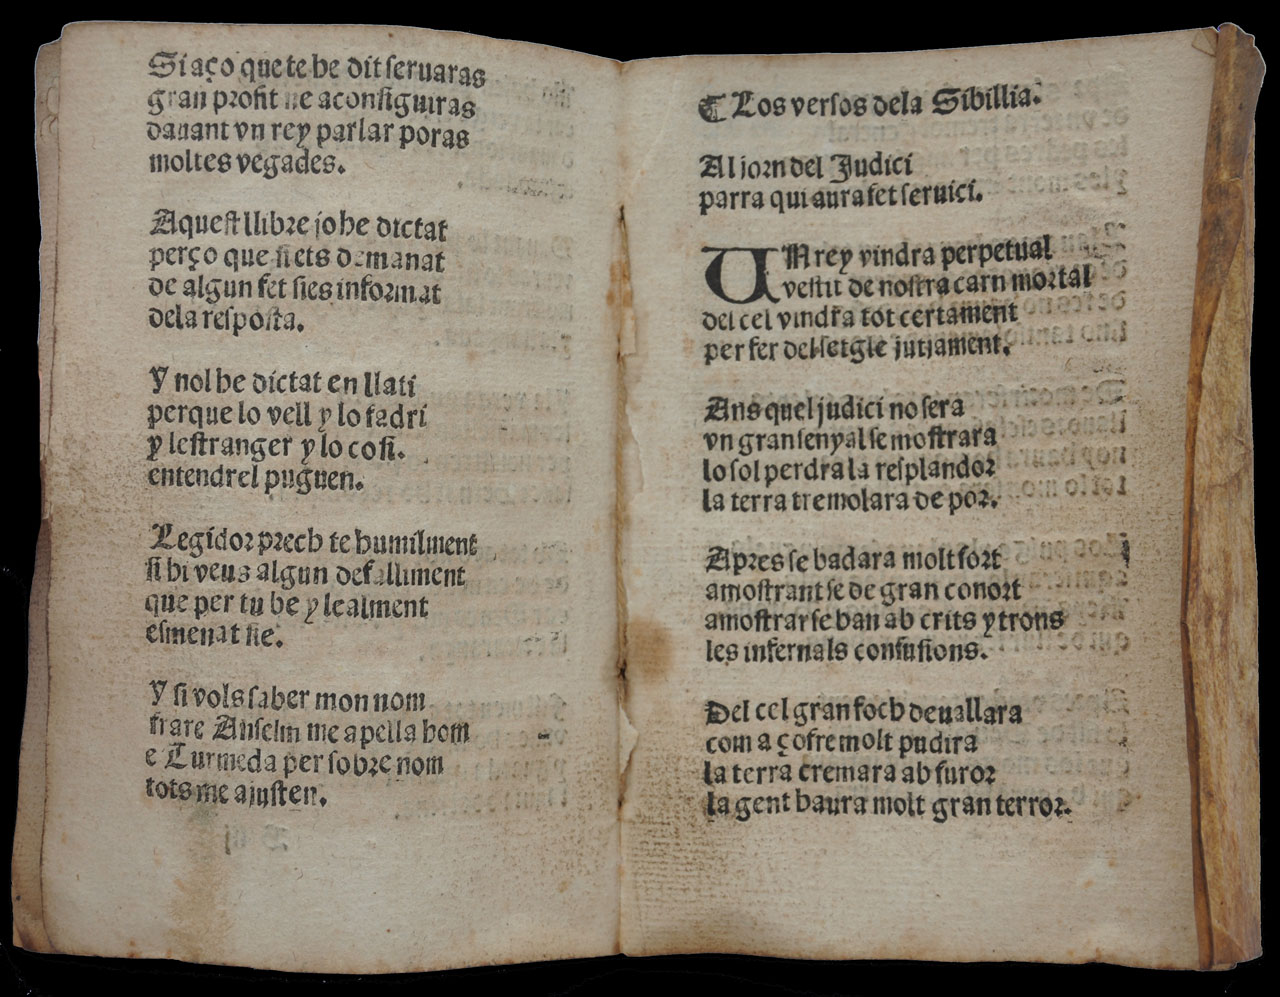 Si aço que te he dit seruaras
gran profit ne aconsiguiras
dauant vn rey parlar poras
moltes vegades.
Aquest llibre jo he dictat
perço que si ets demanat
de algun fet sies informat
dela resposta.
Y nol he dictat en llati
perque lo vell y lo fadri
y lestranger y lo cosi.
entendrel puguen.
Legidor prech te humilment
si hi veus algun defalliment
que per tu be y lealment
esmenat sie.
Y si vols saber mon nom
frare Anselm me apella hom
e Turmeda per sobre nom
tots me ajusten.
¶ Los versos dela Sibillia.
Al jorn del Judici
parra qui aura fet seruici.
UN rey vindra perpetual
vestit de nostra carn mortal
del cel vindra tot certament
per fer del setgle jutjament.
Ans quel judici no sera
vn gran senyal se mostrara
lo sol perdra la resplandor
la terra tremolara de por.
Apres se badara molt fort
amostrant se de gran conort
amostrar se han ab crits y trons
les infernals confusions.
Del cel gran foch deuallara
com a çofre molt pudira
la terra cremara ab furor
la gent haura molt gran terror.